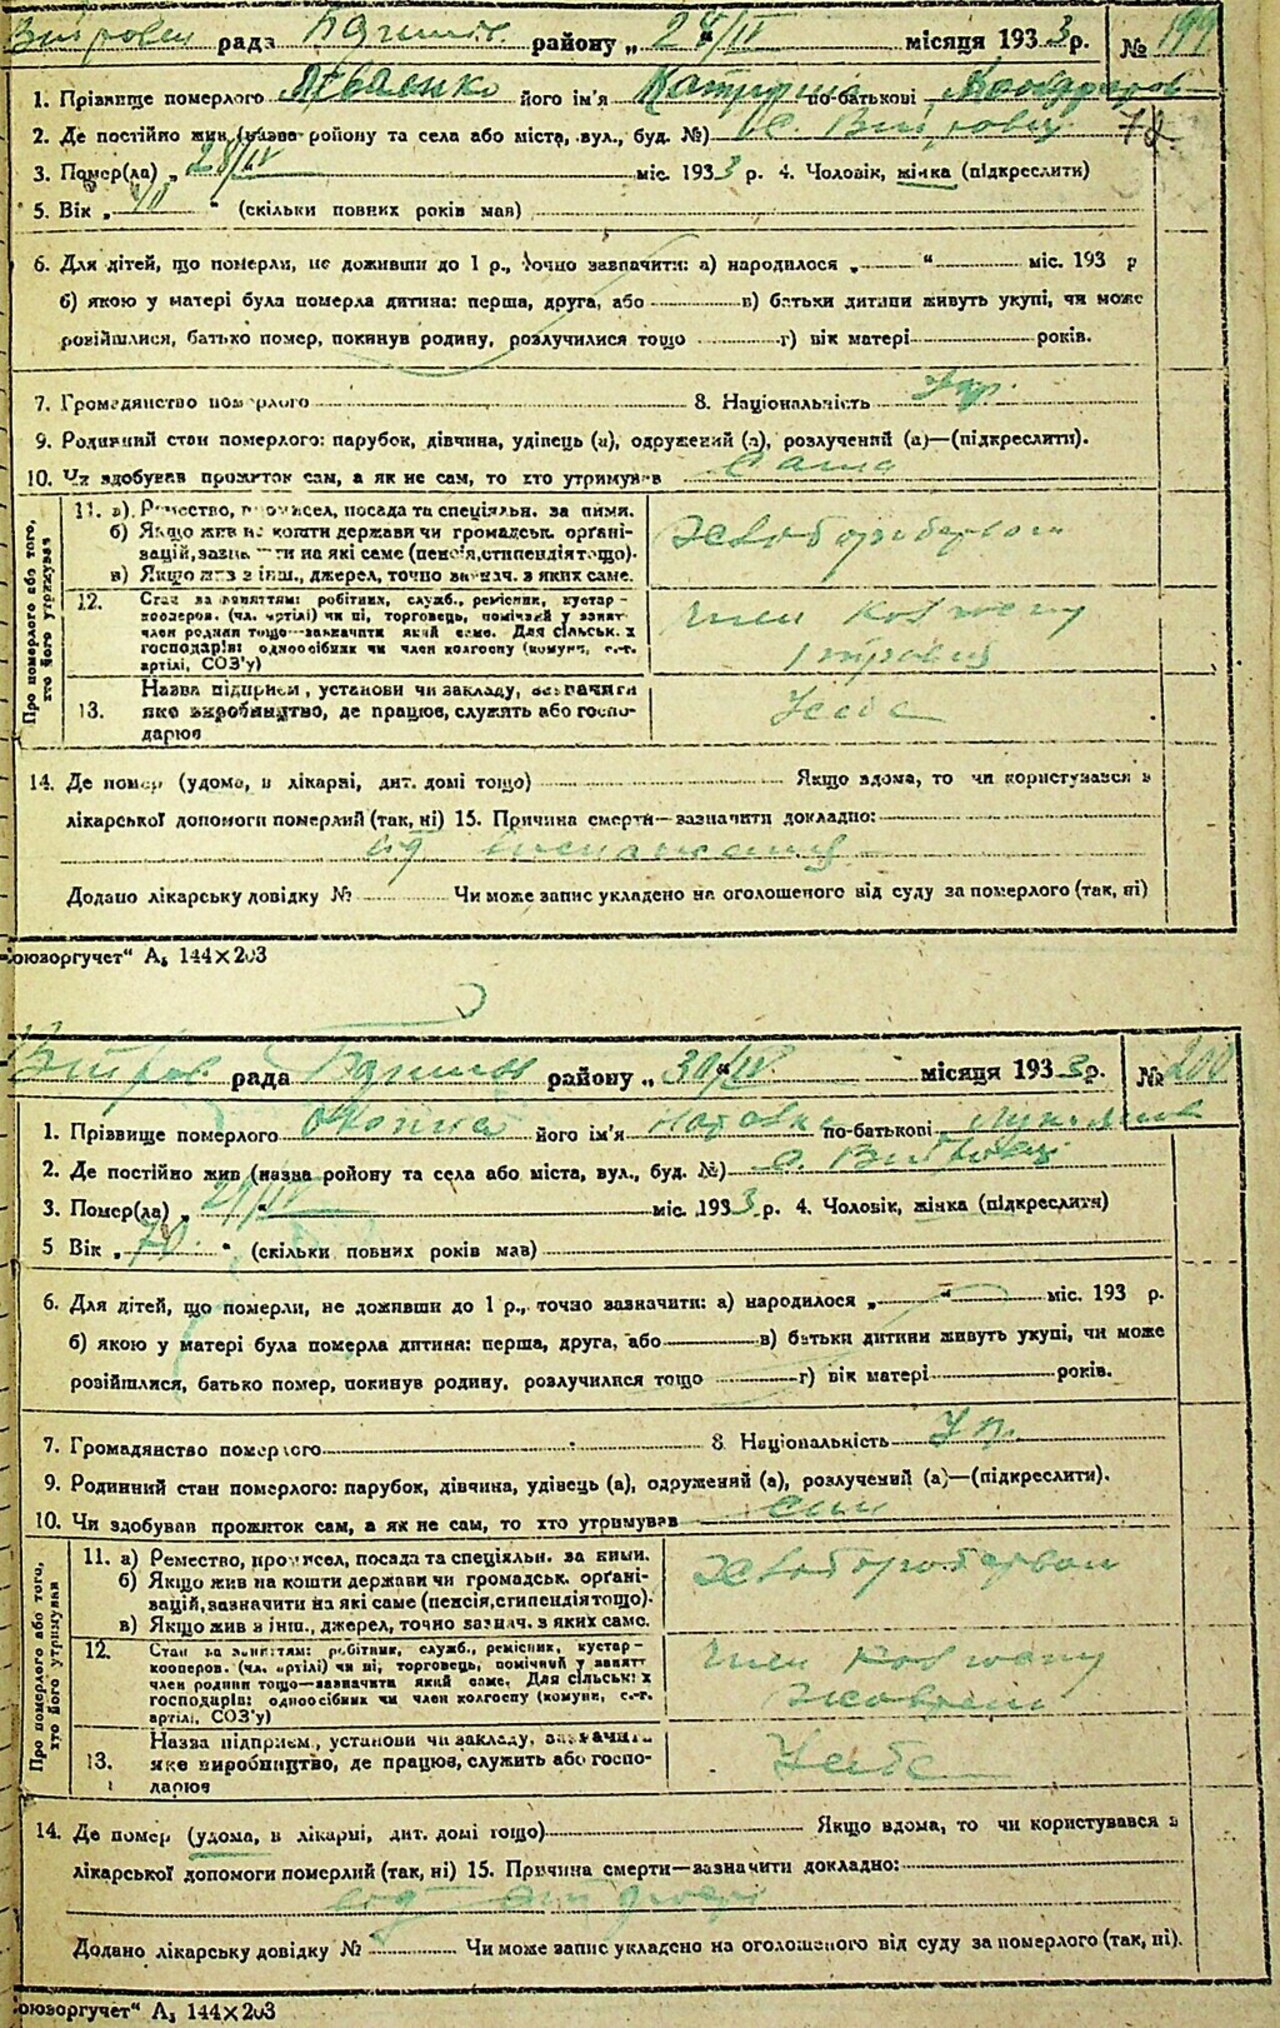 рада району „ 28/IV " місяця 1933 р. № 199
1. Прізвище померлого його ім'я по-батькові
2. Де постійно жив (назва району та села або міста, вул., буд. №) с.
3. Помер(ла) „ 28/IV міс. 1933 р. 4. Чоловік, жінка (підкреслити)
5. Вік „ " (скільки повних років мав)
6. Для дітей, що померли, не доживши до 1 р., точно зазначити: а) народилося „ " міс. 193 р
б) якою у матері була померла дитина: перша, друга, або в) батьки дитини живуть укупі, чи може
розійшлися, батько помер, покинув родину, розлучилися тощо г) вік матері років.
7. Громадянство померлого 8. Національність Укр.
9. Родинний стан померлого: парубок, дівчина, удівець (а), одружений (а), розлучений (а)—(підкреслити).
10. Чи здобував прожиток сам, а як не сам, то хто утримував Сама
Про померлого або того, хто його утримував
11. а) Ремество, промисел, посада та спеціяльн. за ними.
б) Якщо жив на кошти держави чи громадськ. орґані-
зацій, зазначити на які саме (пенсія, стипендія тощо).
в) Якщо жив з інш., джерел, точно зазнач. з яких саме.
Хліборобербом
12. Стан за заняттям: робітник, служб., ремісник, кустар-
кооперов. (чл. артілі) чи ні, торговець, помічний у занят.
член родини тощо—зазначити який саме. Для сільськ. х
господарів: одноосібник чи член колгоспу (комуни, с.-г.
артілі, СОЗ'у)
член
13. Назва підприєм., установи чи закладу, зазначити
яке виробництво, де працює, служить або госпо-
дарює
У себе
14. Де помер (удома, в лікарні, дит. домі тощо) Якщо вдома, то чи користувався з
лікарської допомоги померлий (так, ні) 15. Причина смерти—зазначити докладно:
від
Додано лікарську довідку № Чи може запис укладено на оголошеного від суду за померлого (так, ні)
оюзоргучет" А₅ 144×203
рада району „ 30/IV " місяця 1933 р. № 200
1. Прізвище померлого його ім'я по-батькові
2. Де постійно жив (назва району та села або міста, вул., буд. №) с.
3. Помер(ла) „ " міс. 1933 р. 4. Чоловік, жінка (підкреслити)
5 Вік „ 70 " (скільки повних років мав)
6. Для дітей, що померли, не доживши до 1 р., точно зазначити: а) народилося „ " міс. 193 р.
б) якою у матері була померла дитина: перша, друга, або в) батьки дитини живуть укупі, чи може
розійшлися, батько помер, покинув родину, розлучилися тощо г) вік матері років.
7. Громадянство померлого 8. Національність Укр.
9. Родинний стан померлого: парубок, дівчина, удівець (а), одружений (а), розлучений (а)—(підкреслити).
10. Чи здобував прожиток сам, а як не сам, то хто утримував син
Про померлого або того, хто його утримував
11. а) Ремество, промисел, посада та спеціяльн. за ними.
б) Якщо жив на кошти держави чи громадськ. орґані-
зацій, зазначити на які саме (пенсія, стипендія тощо).
в) Якщо жив з інш., джерел, точно зазнач. з яких саме.
Хліборобербом
12. Стан за заняттям: робітник, служб., ремісник, кустар-
кооперов. (чл. артілі) чи ні, торговець, помічний у занят.
член родини тощо—зазначити який саме. Для сільськ. х
господарів: одноосібник чи член колгоспу (комуни, с.-г.
артілі, СОЗ'у)
член
13. Назва підприєм., установи чи закладу, зазначити
яке виробництво, де працює, служить або госпо-
дарює
У себе
14. Де помер (удома, в лікарні, дит. домі тощо) Якщо вдома, то чи користувався з
лікарської допомоги померлий (так, ні) 15. Причина смерти—зазначити докладно:
від
Додано лікарську довідку № Чи може запис укладено на оголошеного від суду за померлого (так, ні).
оюзоргучет" А₅ 144×203